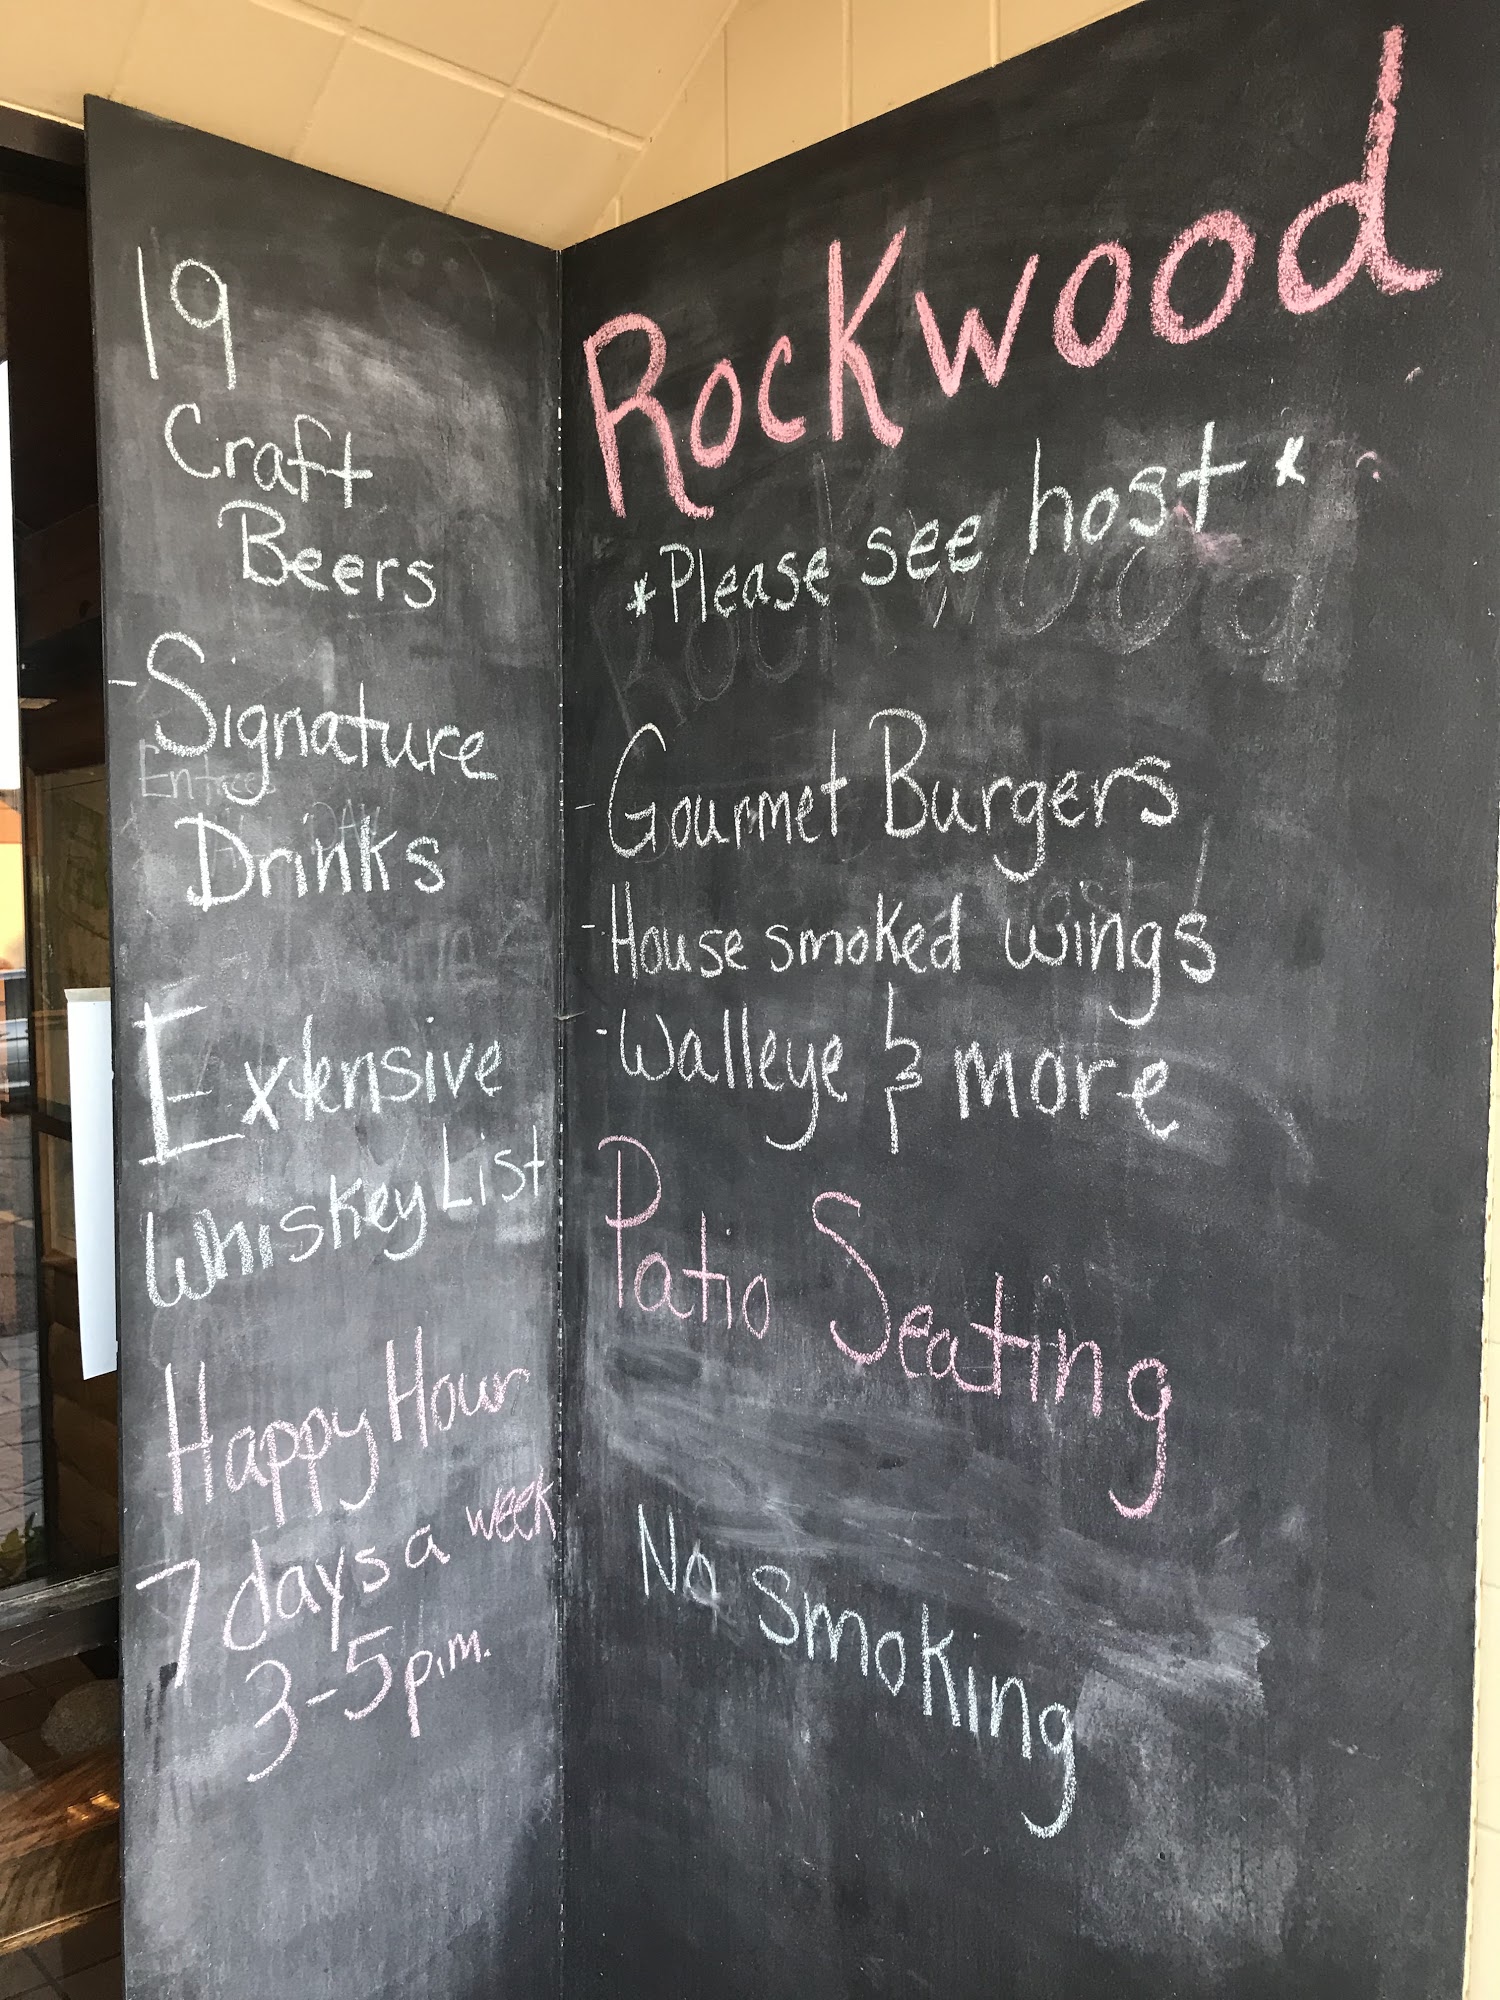 19
Craft
Beers
- Signature
Drinks
Extensive
Whiskey List
Happy Hour
7 days a week
3-5 p.m.
Rockwood
*Please see host*
- Gourmet Burgers
- House smoked wings
- Walleye & more
Patio Seating
No Smoking
Rockwood